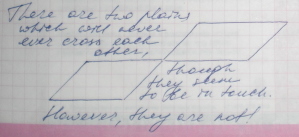 There are two plains
which will never
ever cross each
other,
though
they seem
to be in touch.
However, they are not!